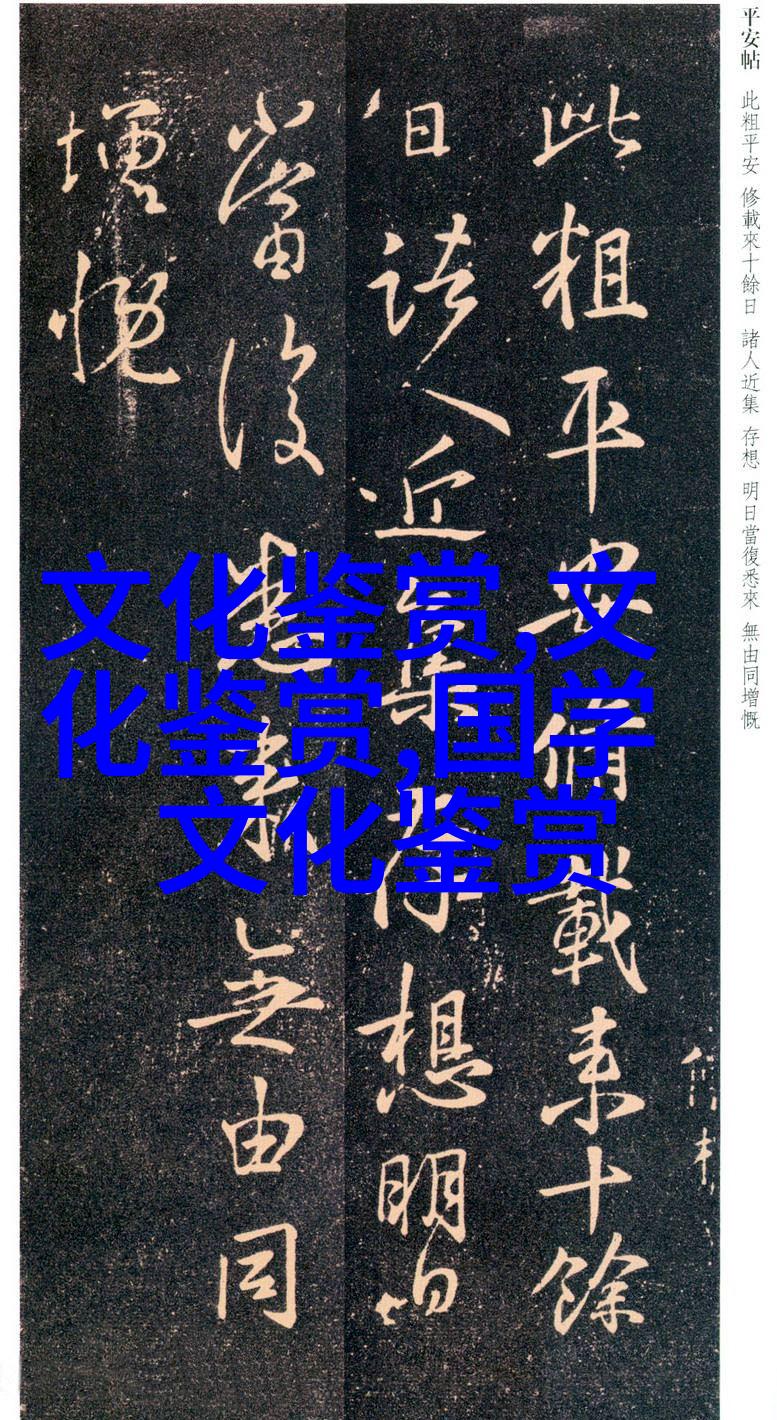 平安帖 此粗平安 修載來十餘日 諸人近集 存想 明日當復悉來 無由同增慨
此粗平安脩載来十餘
日諸人近集存想明日
當復悉来無由同
增慨
文化鉴赏,文
化鉴赏,国学
文化鉴赏